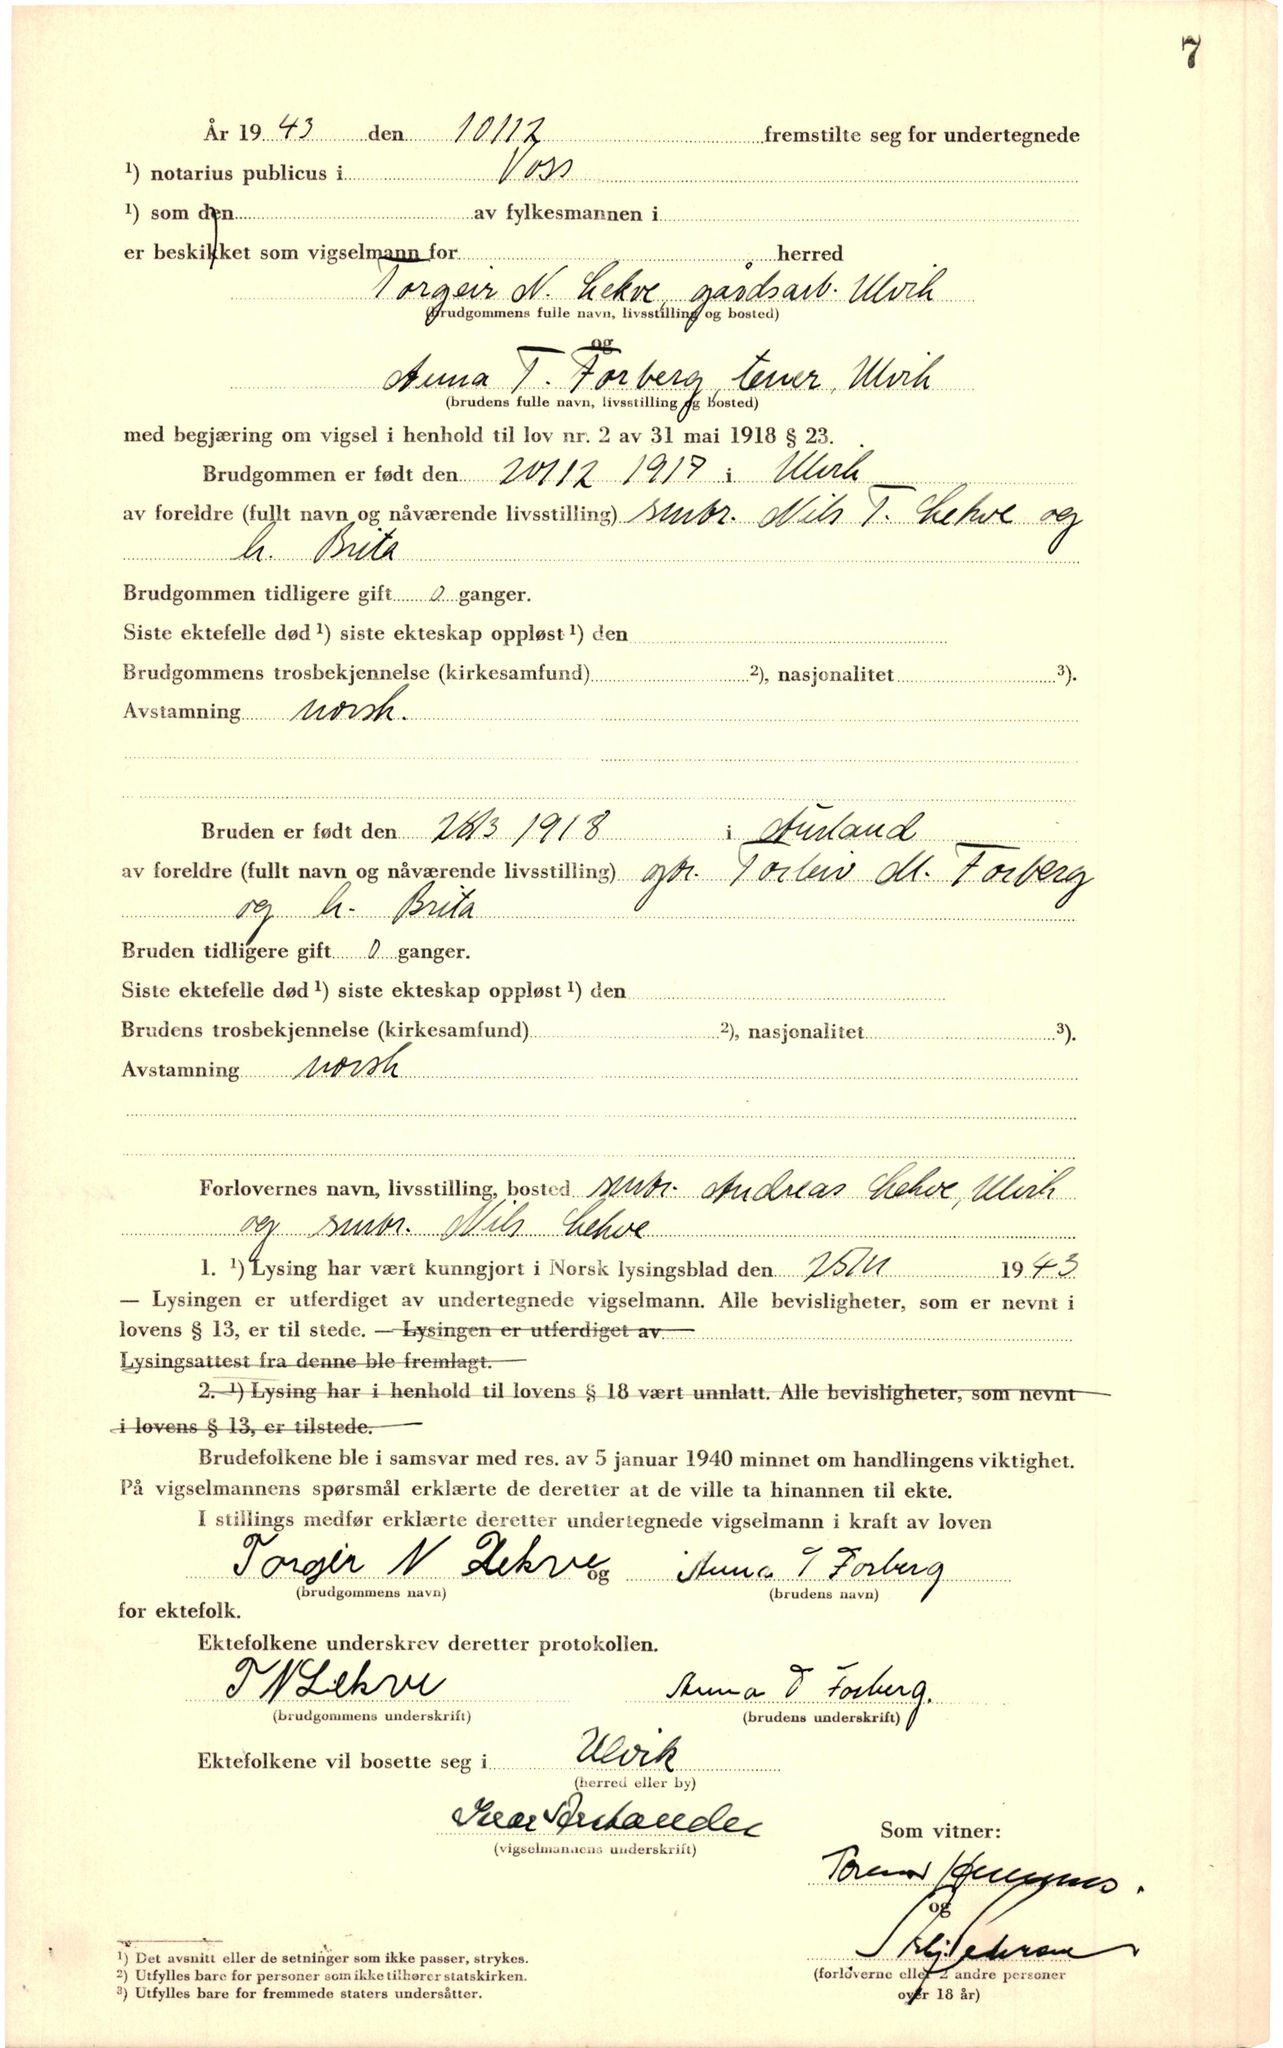 7
År 1943 den 10/12 fremstilte seg for undertegnede
¹) notarius publicus i Voss
¹) som den av fylkesmannen i
er beskikket som vigselmann for herred
Torgeir N. Lekve, gårdsarb. Ulvik
(brudgommens fulle navn, livsstilling og bosted)
og
Anna T. Forberg, tener, Ulvik
(brudens fulle navn, livsstilling og bosted)
med begjæring om vigsel i henhold til lov nr. 2 av 31 mai 1918 § 23.
Brudgommen er født den 20/12 1917 i Ulvik
av foreldre (fullt navn og nåværende livsstilling) smbr. Nils T. Lekve og
h. Brita
Brudgommen tidligere gift 0 ganger.
Siste ektefelle død ¹) siste ekteskap oppløst ¹) den
Brudgommens trosbekjennelse (kirkesamfund) ²), nasjonalitet ³).
Avstamning norsk.
Bruden er født den 28/3 1918 i Aurland
av foreldre (fullt navn og nåværende livsstilling) gbr. Torleiv M. Forberg
og h. Brita
Bruden tidligere gift 0 ganger.
Siste ektefelle død ¹) siste ekteskap oppløst ¹) den
Brudens trosbekjennelse (kirkesamfund) ²), nasjonalitet ³).
Avstamning norsk
Forlovernes navn, livsstilling, bosted smbr. Andreas Lekve, Ulvik
og smbr. Nils Lekve
1. ¹) Lysing har vært kunngjort i Norsk lysingsblad den 25/11 1943
— Lysingen er utferdiget av undertegnede vigselmann. Alle bevisligheter, som er nevnt i
lovens § 13, er til stede. — Lysingen er utferdiget av
Lysingsattest fra denne ble fremlagt.
2. ¹) Lysing har i henhold til lovens § 18 vært unnlatt. Alle bevisligheter, som nevnt
i lovens § 13, er tilstede.
Brudefolkene ble i samsvar med res. av 5 januar 1940 minnet om handlingens viktighet.
På vigselmannens spørsmål erklærte de deretter at de ville ta hinannen til ekte.
I stillings medfør erklærte deretter undertegnede vigselmann i kraft av loven
Torgeir N Lekve og Anna T Forberg
(brudgommens navn) (brudens navn)
for ektefolk.
Ektefolkene underskrev deretter protokollen.
T N Lekve Anna T Forberg.
(brudgommens underskrift) (brudens underskrift)
Ektefolkene vil bosette seg i Ulvik
(herred eller by)
Ivar
(vigselmannens underskrift)
Som vitner:
og
(forloverne eller 2 andre personer
over 18 år)
¹) Det avsnitt eller de setninger som ikke passer, strykes.
²) Utfylles bare for personer som ikke tilhører statskirken.
³) Utfylles bare for fremmede staters undersåtter.